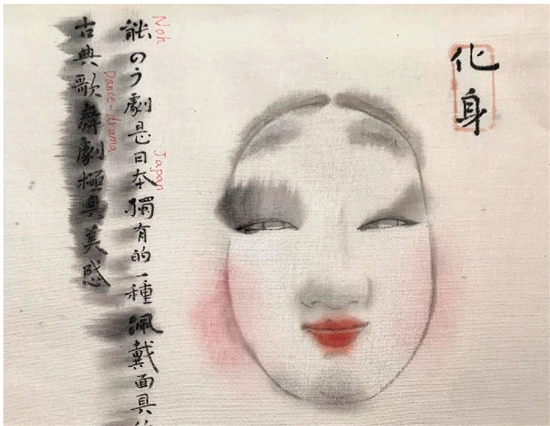 化身
Noh
Japan
能のう劇是日本獨有的一種佩戴面具
Dance-drama
古典歌舞劇極具美感